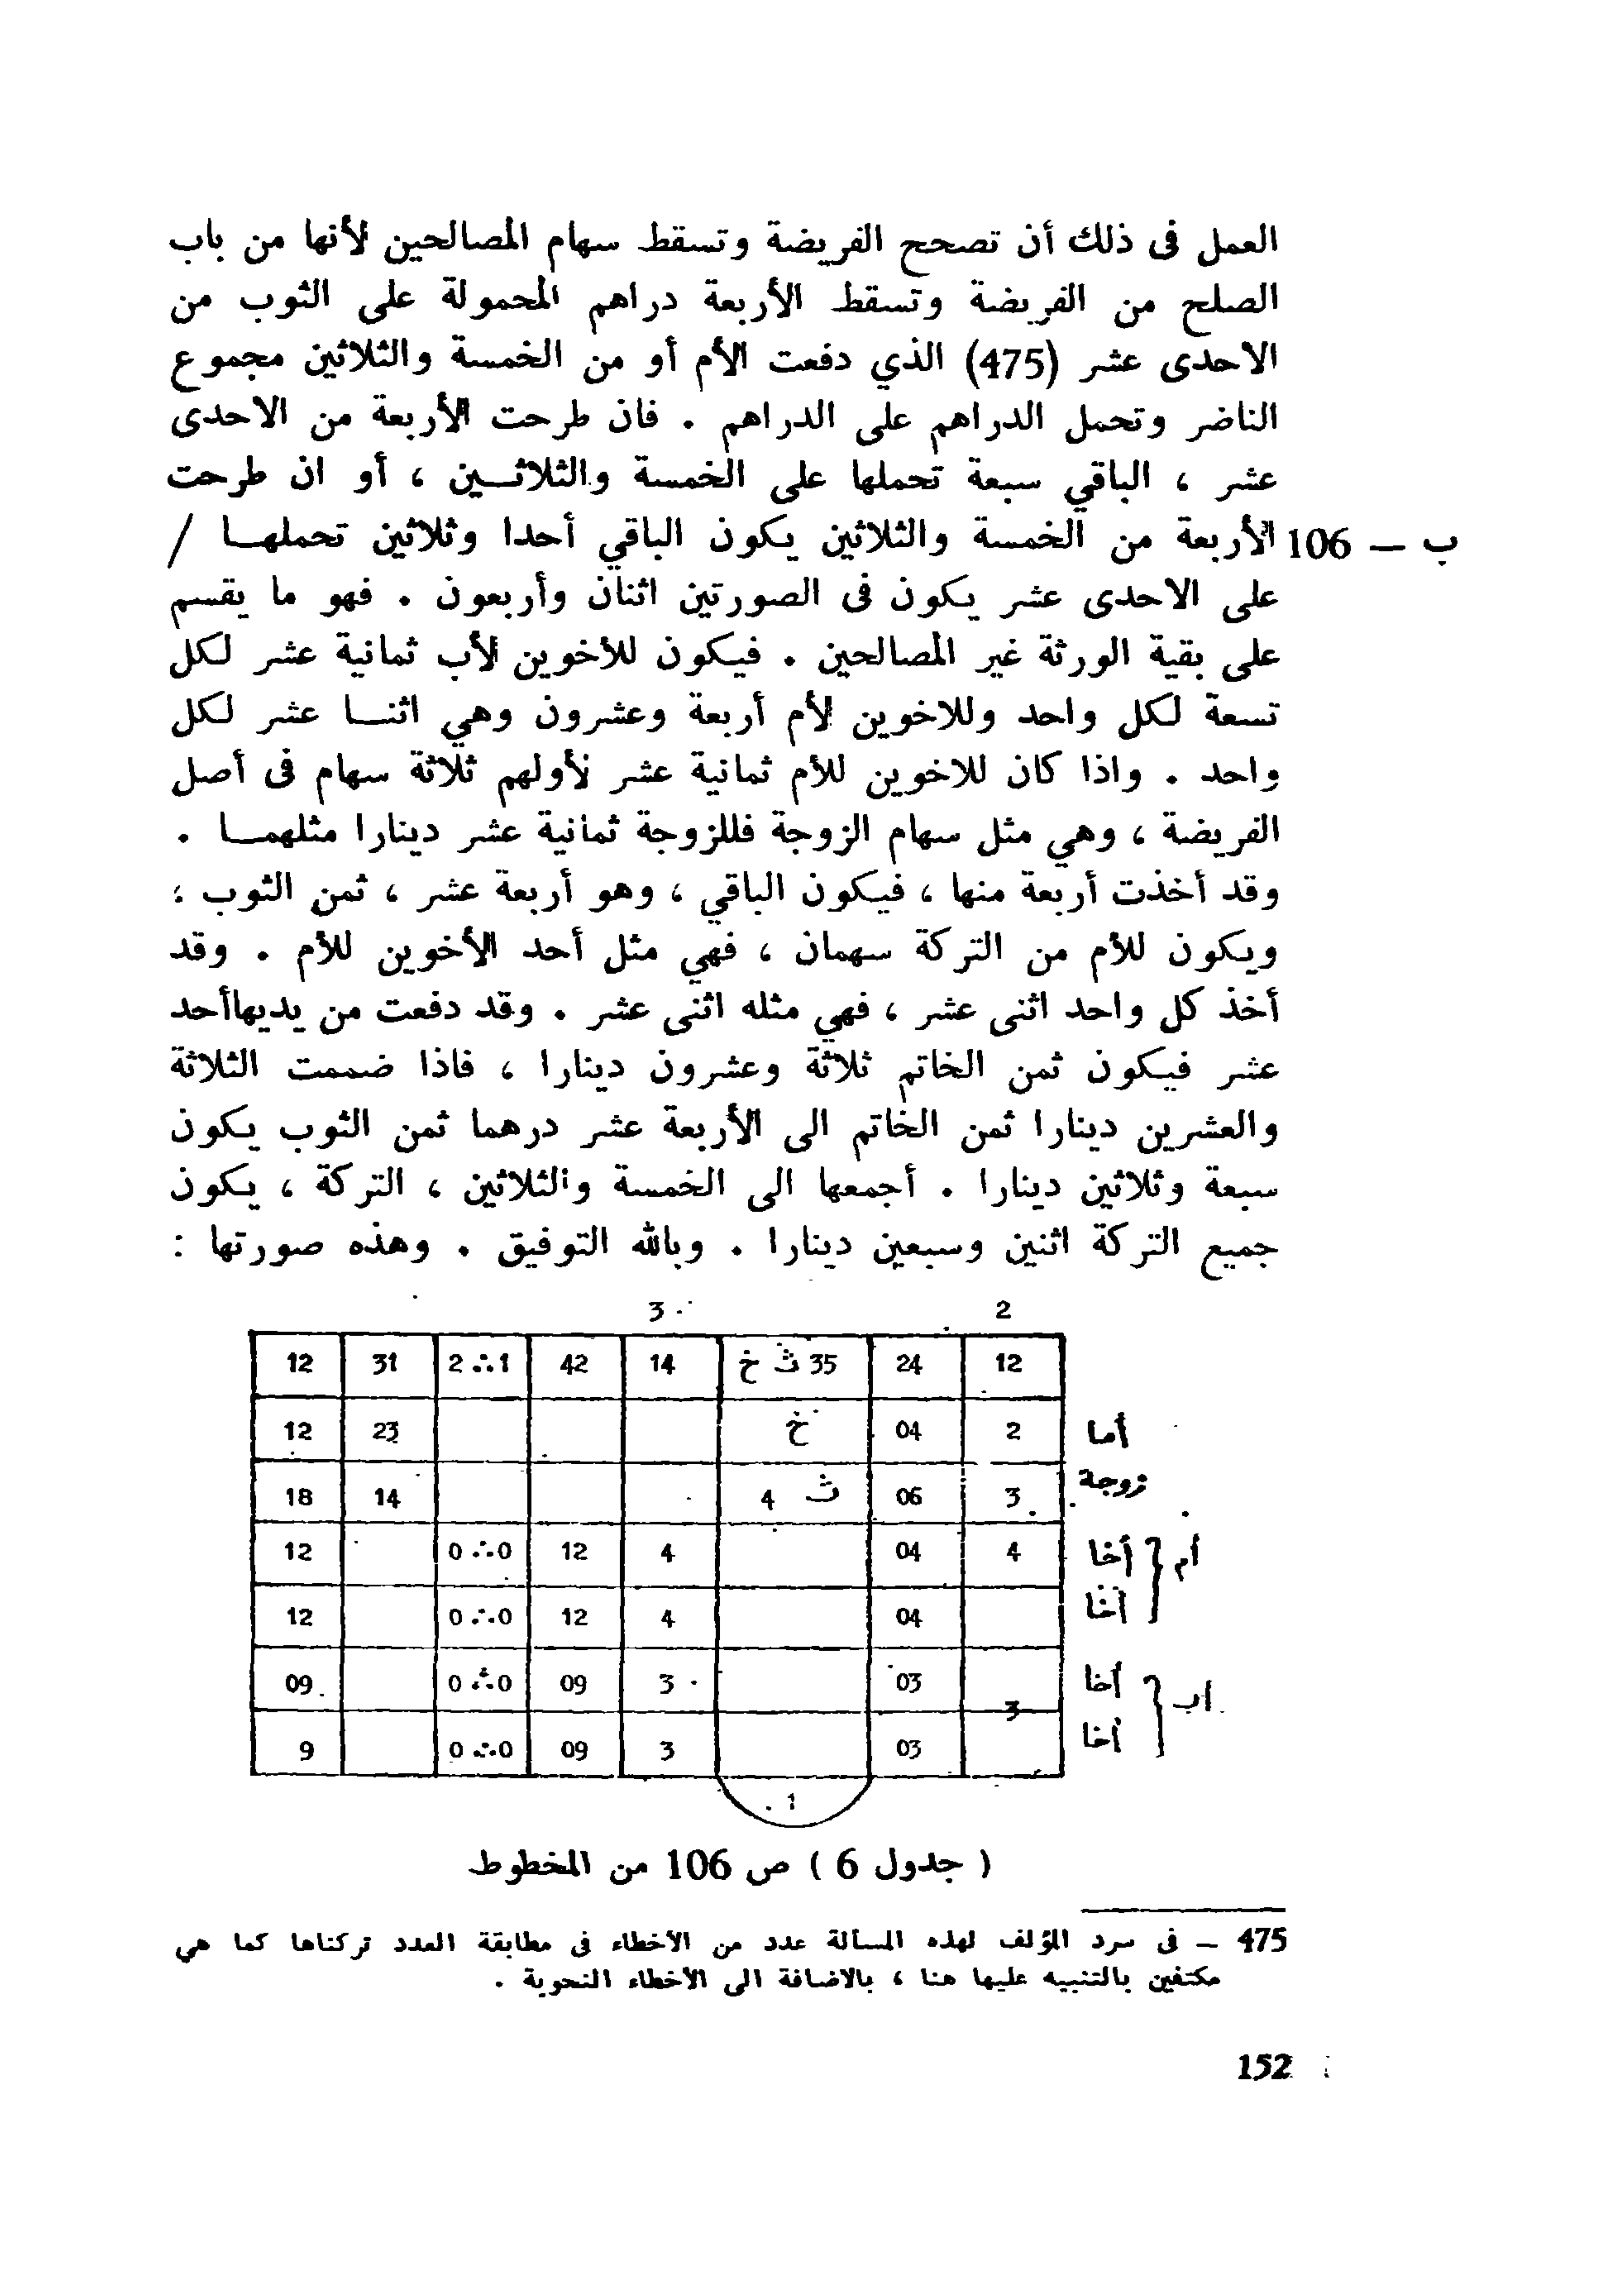 العمل فى ذلك أن تصحح الفريضة وتسقط سهام المصالحين لأنها من باب
الصلح من الفريضة وتسقط الأربعة دراهم المحمولة على الثوب من
الاحدى عشر (475) الذي دفعت الأم أو من الخمسة والثلاثين مجموع
الناضر وتحمل الدراهم على الدراهم . فان طرحت الأربعة من الاحدى
عشر ، الباقي سبعة تحملها على الخمسة والثلاثــين ، أو ان طرحت
ب — 106 الأربعة من الخمسة والثلاثين يكون الباقي أحدا وثلاثين تحملهــا /
على الاحدى عشر يكون فى الصورتين اثنان وأربعون . فهو ما يقسم
على بقية الورثة غير المصالحين . فيكون للأخوين لأب ثمانية عشر لكل
تسعة لكل واحد وللاخوين لأم أربعة وعشرون وهي اثنــا عشر لكل
واحد . واذا كان للاخوين للأم ثمانية عشر لأولهم ثلاثة سهام فى أصل
الفريضة ، وهي مثل سهام الزوجة فللزوجة ثمانية عشر دينارا مثلهمــا .
وقد أخذت أربعة منها ، فيكون الباقي ، وهو أربعة عشر ، ثمن الثوب ؛
ويكون للأم من التركة سهمان ، فهي مثل أحد الأخوين للأم . وقد
أخذ كل واحد اثنى عشر ، فهي مثله اثنى عشر . وقد دفعت من يديهاأحد
عشر فيكون ثمن الخاتم ثلاثة وعشرون دينارا ، فاذا ضممت الثلاثة
والعشرين دينارا ثمن الخاتم الى الأربعة عشر درهما ثمن الثوب يكون
سبعة وثلاثين دينارا . أجمعها الى الخمسة والثلاثين ، التركة ، يكون
جميع التركة اثنين وسبعين دينارا . وبالله التوفيق . وهذه صورتها :
2 3
12 24 35 ث خ 14 42 1 ∴ 2 31 12
أما 2 04 خ 23 12
زوجة 3 06 ث 4 14 18
أم { أخا 4 04 4 12 0 ∴ 0 12
أخا 04 4 12 0 ∴ 0 12
اب { أخا 3 03 3 09 0 ∴ 0 09
أخا 03 3 09 0 ∴ 0 9
1
( جدول 6 ) ص 106 من المخطوط
475 – فى سرد المؤلف لهذه المسألة عدد من الأخطاء فى مطابقة العدد تركناها كما هي
مكتفين بالتنبيه عليها هنا ، بالاضافة الى الأخطاء النحوية .
152